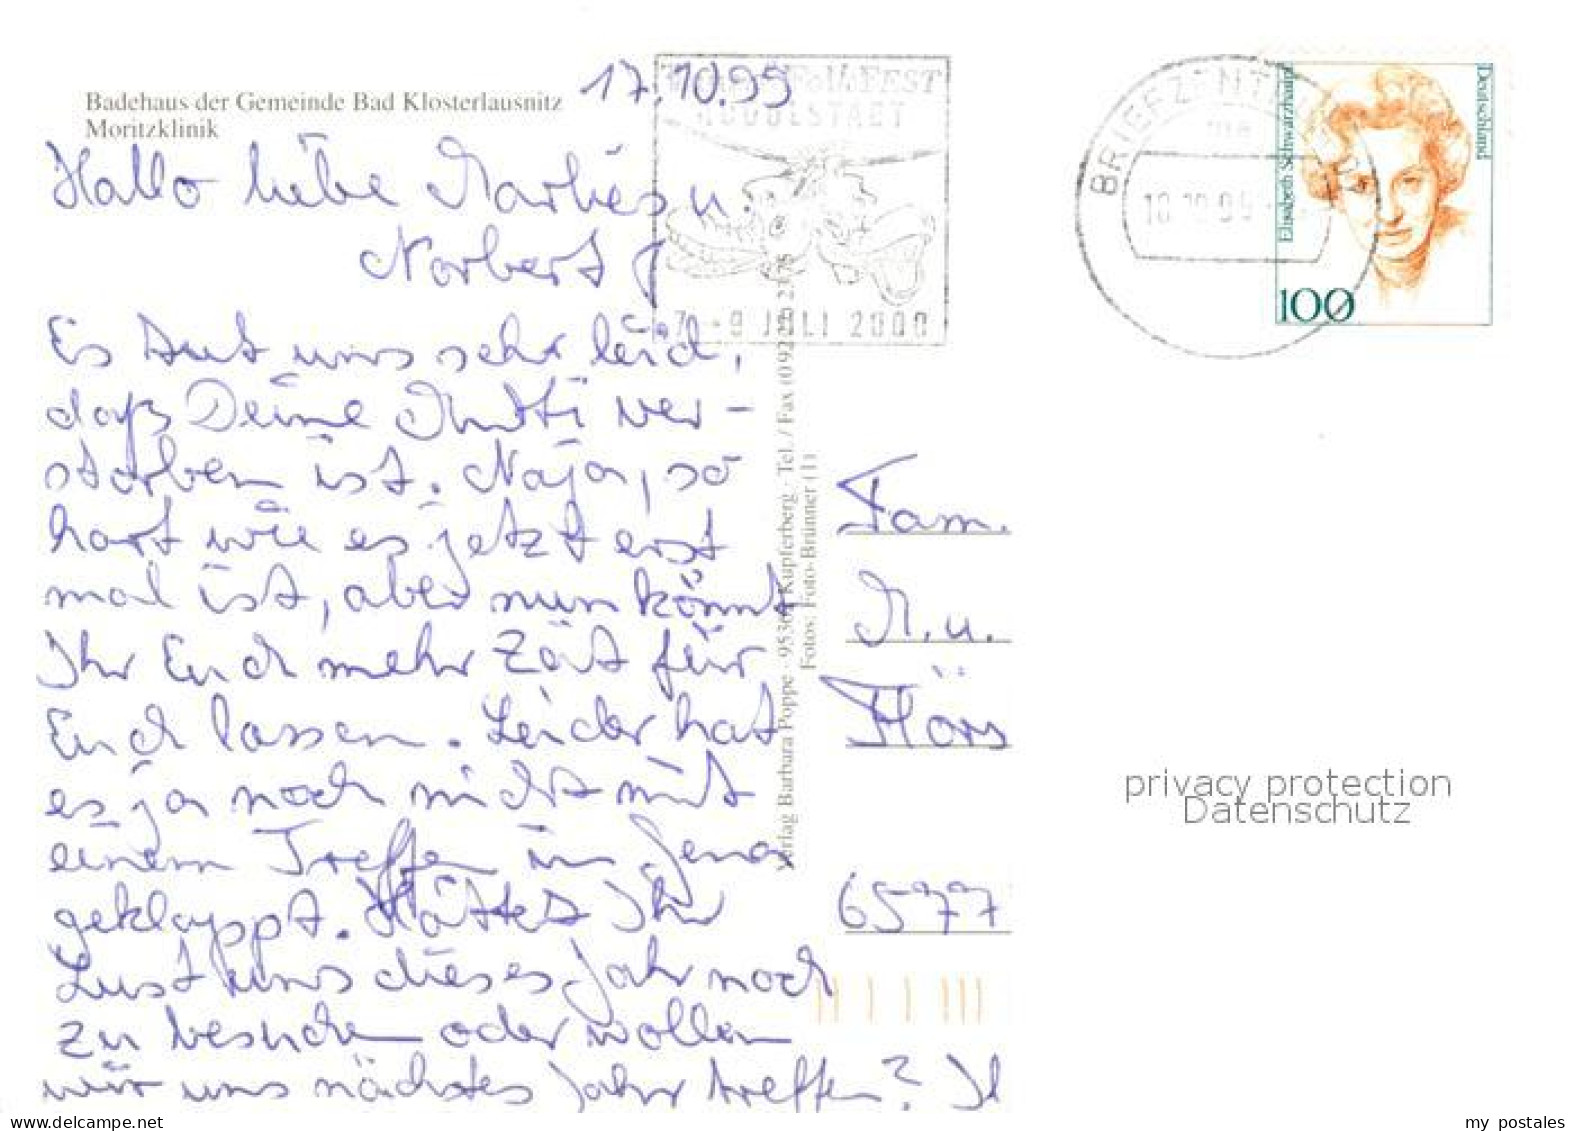 17.10.99
Badehaus der Gemeinde Bad Klosterlausnitz
Moritzklinik
Hallo liebe Marlies u.
Norbert
Es tut uns sehr leid,
daß Deine Mutti ver-
storben ist. Naja, so
hart wie es jetzt erst
mal ist, aber nun könnt
Ihr Euch mehr Zeit für
Euch lassen. Leider hat
es ja noch nicht mit
einem Treffen in Jena
geklappt. Hättet Ihr
Lust uns dieses Jahr noch
zu besuchen oder wollen
wir uns nächstes Jahr treffen?
FEST
RUDOLSTADT
7.-9 JULI 2000
Verlag Barbara Poppe · Kupferberg · Tel. / Fax
Fotos: Foto-Brünner (1)
BRIEFZENTRUM
18.10.99
Elisabeth Schwarzhaupt
Deutschland
100
Fam.
M. u.
65977
privacy protection
Datenschutz
my postales